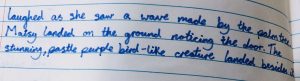 laughed as she saw a wave made by the palm tree.
Maisy landed on the ground noticing the door. The
stunning, pastle purple bird-like creature landed beside